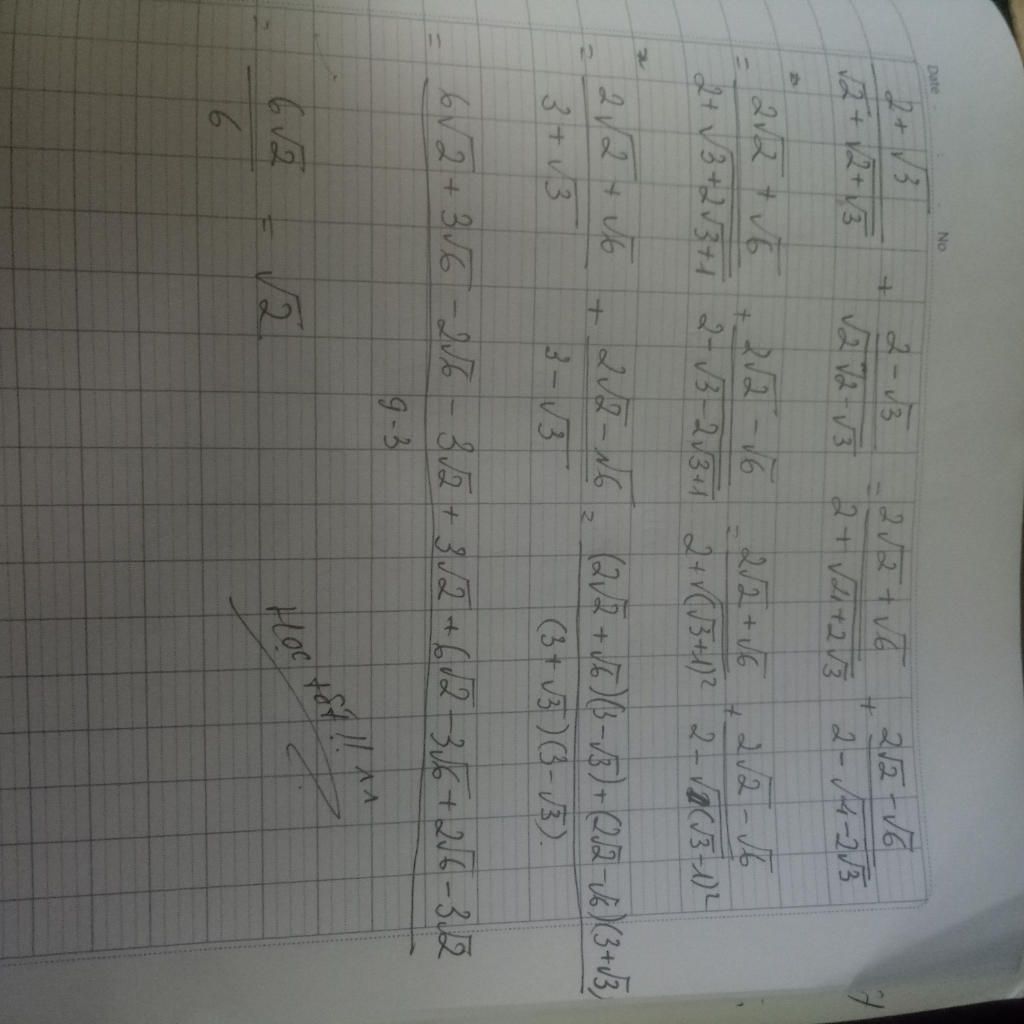 Date. No
(2+√3)/(√2+√(2+√3)) + (2-√3)/(√2-√(2-√3)) = (2√2+√6)/(2+√(4+2√3)) + (2√2-√6)/(2-√(4-2√3))
= (2√2+√6)/(2+√(3+2√3+1)) + (2√2-√6)/(2-√(3-2√3+1)) = (2√2+√6)/(2+√(√3+1)²) + (2√2-√6)/(2-√(√3-1)²)
= (2√2+√6)/(3+√3) + (2√2-√6)/(3-√3) = ((2√2+√6)(3-√3)+(2√2-√6)(3+√3))/((3+√3)(3-√3))
= (6√2+3√6-2√6-3√2+3√2+6√2-3√6+2√6-3√2)/(9-3)
= 6√2/6 = √2
Học tốt!! ^^